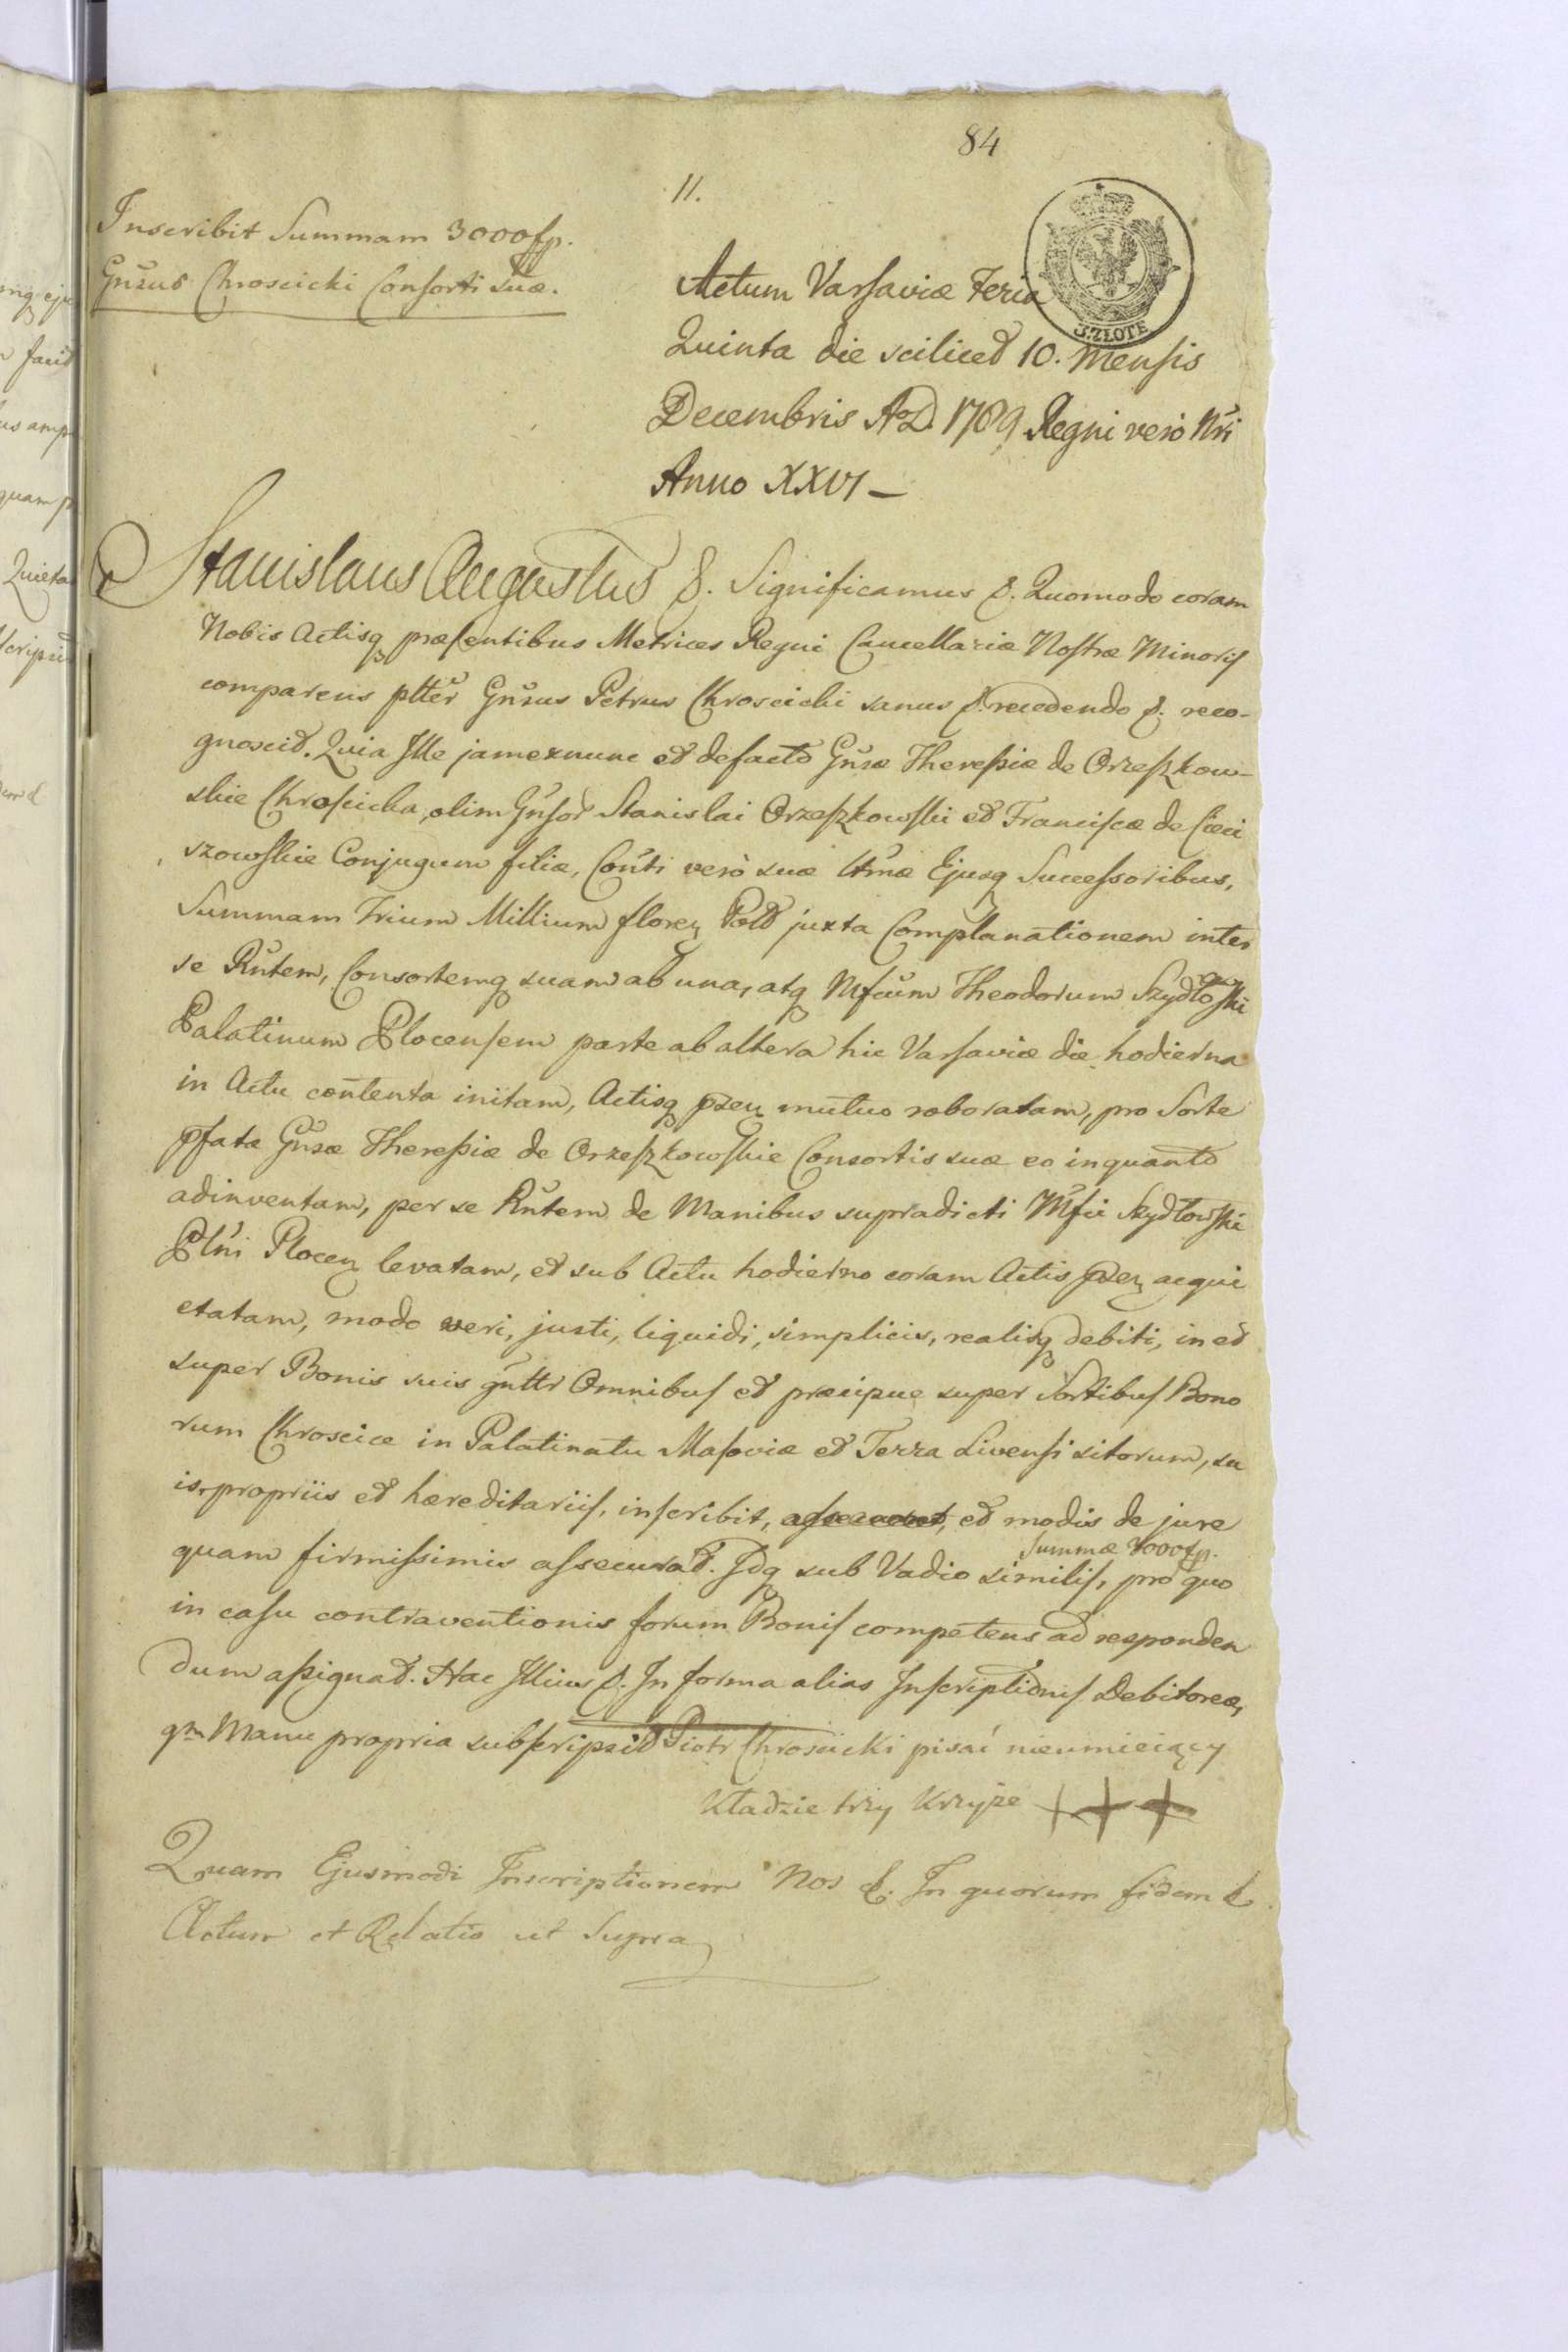 84
11.
Inscribit Summam 3000 fp.
Gnrus Chroscicki Consorti suæ.
3. ZŁOTE
Actum Varsaviæ Feria
Quinta die scilicet 10. Mensis
Decembris A. D. 1789 Regni verò Nri
Anno XXVI –
Stanislaus Augustus &. Significamus &. Quomodo coram
Nobis Actisq præsentibus Metrices Regni Cancellariæ Nostræ Minoris
comparens pltter Gnrus Petrus Chroscicki sanus &. recedendo &. reco-
gnoscit. Quia Ille jamexnunc et defacto Gnræ Theresiæ de Orzeszkow-
skie Chrosicka, olim Gnsor Stanislai Orzeszkowski et Franciscæ de Cieci
szowskie Conjugum filiæ, Conti verò suæ Ltmæ Ejusq Successoribus,
Summam Trium Millium floren Pold juxta Complanationem inter
se Rntem, Consortemq suam ab una, atq Mfcum Theodorum Szydłowski
Palatinum Plocensem parte ab altera hic Varsaviæ die hodierna
in Actu contenta initam, Actisq pzen mutuo roboratam, pro Sorte
pfata Gnræ Theresiæ de Orzeszkowskie Consortis suæ eo inquanto
adinventam, per se Rntem de Manibus supradicti Mfci Szydłowski
Plni Plocen levatam, et sub Actu hodierno coram Actis pzen acqui
etatam, modo veri, justi, liquidi, simplicis, realisq debiti, in et
super Bonis suis gnttr Omnibus et præcipue super Sortibus Bono
rum Chroscice in Palatinatu Masoviæ et Terra Livensi sitorum, su
is, propriis et hæreditariis, inscribit, et modis de jure
quam firmissimis assecurat. Idq sub Vadio similis, Summæ 3000 fp. pro quo
in casu contraventionis forum Bonis competens ad responden
dum assignat. Hac Illius &. In forma alias Inscriptionis Debitoreæ,
qm Manu propria subscripsit Piotr Chroscicki pisać nieumieiący
Kładzie trzy Krzyże + + +
Quam Ejusmodi Inscriptionem Nos &. In quorum fidem &
Actum et Relatio ut Supra